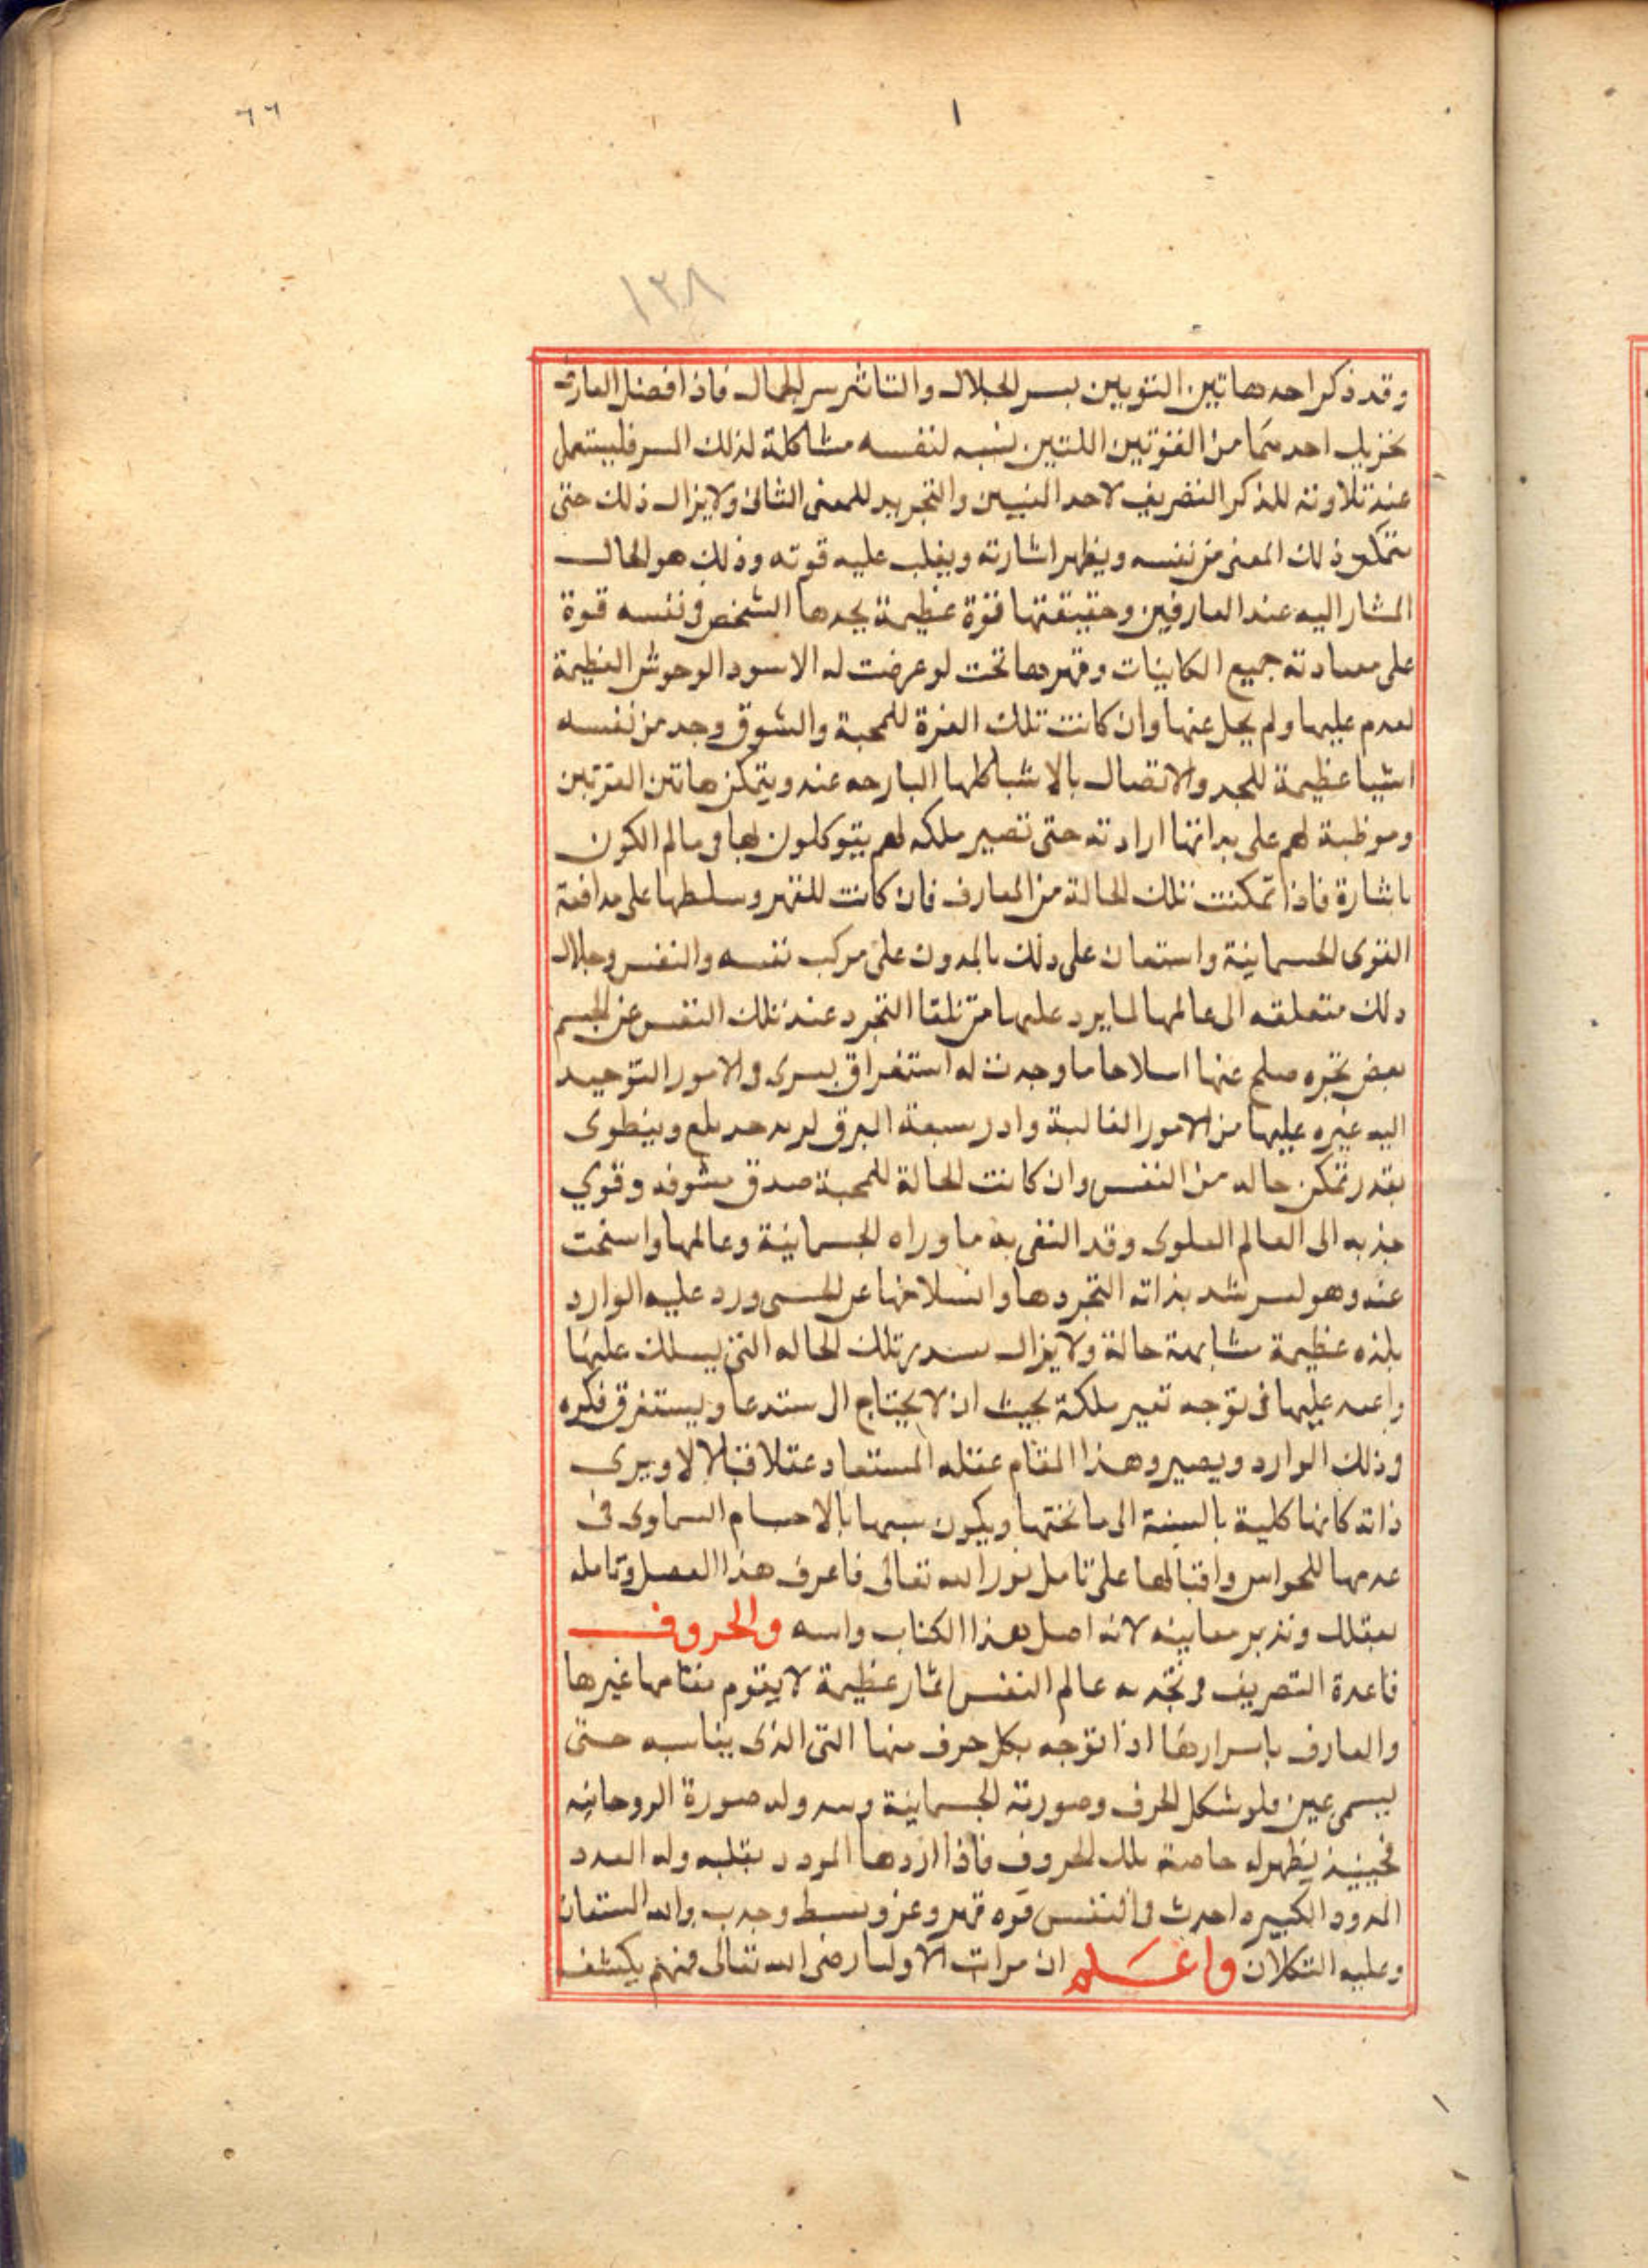 ٦٦
١
١٣٨
وقد ذكر احد هاتين التوبين بسر الجلال والتاثر سر الجمال فاذا افضل العارف
احدهما من القوتين اللتين نسبه لنفسه مشاكلة لذلك السر فليستعمل
عند تلاوته للذكر التصريف لاحد النسبين والتجريد للمعنى الثانى ولا يزال ذلك حتى
ذلك المعنى من نفسه ويظهر اشارته ويغلب عليه قوته وذلك هو الحال
المشار اليه عند العارفين وحقيقتها قوة عظيمة يجدها الشخص فى نفسه قوة
على معادته جميع الكاينات وقهرها تحت لو عرضت له الاسود الوحوش العظيمة
لعدم عليها ولم يحل عنها وان كانت تلك القرة للمحبة والشوق وجد من نفسه
اشيا عظيمة للمجد والاتصال بالاشيا كلها البارحه عنه ويتمكن هاتين القوتين
وموظبة لهم على بدانها ارادته حتى تصير ملكه لهم يتوكلون لها فى مالم الكون
باشارة فاذا تمكنت تلك الحالة من المعارف فان كانت للقهر وسلطها على مدافعة
القوى الجسمانية واستعان على ذلك بالمدون على مركب نفسه والنفس وجلال
دلك متعلقه الى عالمها لما يرد عليها متى تلقا التجرد عند تلك النفس عن الجسم
بعض تجره صلح عنها اسلاحا ما وجدت له استغراق بسرى والامور التوحيد
اليه غيره عليها من الامور الغالبة وادر سبعة البرق لريد حد بلع وينطوى
بقدر تمكن حاله من النفس وان كانت الحالة للمحبة صدق مشوفه وقوي
جذبه الى العالم العلوى وقد النفى به ما وراه الجسمانية وعالمها واسخت
عنه وهو لسر شد بذاته التجردها وانسلاخها عن الحسى ورد عليه الوارد
بلذه عظيمة مشابهة حالة ولا يزال تلك الحاله التى يسلك عليها
عليها فى توجه تغير ملكة بحيث ان لا يحتاج ال ستدعا ويستغرق فكره
وذلك الوارد ويصير وهذا المقام عقله المستعاد عقلا فتالا لا ويرى
ذاته كانها كلية بالسبنة الى ما تحتها ويكون سبها بالاحسام السماوى فى
عدمها للحواس واقبالها على تامل نور الله تعالى فاعرف هذا الفصل وتامله
بعقلك وتدبر معاينه لانه اصل هذا الكتاب واسه والحروف
قاعدة التصريف فى عالم النفس اثار عظيمة لا يقوم مقامها غيرها
والعارف باسرارها اذا توجه بكل حرف منها التى الذى يناسبه حتى
ليسمى عين ولو شكل الحرف وصورته الجسمانية وله صورة الروحانيه
فحينيذ يظهر له خاصة تلك الحروف فاذا ارادها المودد بقلبه وله العدد
المدود الكبيره احدث فى النفس قوه قهر وعز وبسط وجدب والله المستعان
وعليه التكلان واعلم ان مرات الاوليا رضى الله تعالى منهم يكشف